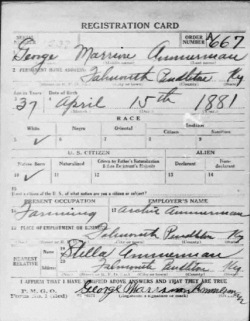 REGISTRATION CARD
SERIAL NUMBER
ORDER NUMBER
667
George Marrion Ammerman
2 PERMANENT HOME ADDRESS:
Falmouth Pendleton Ky
Age in Years
Date of Birth
37 April 15th 1881
RACE
White
Negro
Oriental
Indian
Citizen
Noncitizen
U. S. CITIZEN
ALIEN
Native Born
Naturalized
Citizen by Father's Naturalization
If not a citizen of the U. S., of what nation are you a citizen or subject?
PRESENT OCCUPATION
EMPLOYER'S NAME
Farming
Archie Ammerman
PLACE OF EMPLOYMENT OR BUSINESS
Falmouth Pendleton Ky
NEAREST RELATIVE
Name
Stella Ammerman
Address
Falmouth Pendleton Ky
I AFFIRM THAT I HAVE VERIFIED ABOVE ANSWERS AND THAT THEY ARE TRUE
P. M. G. O.
Form No. 1
George
Ammerman